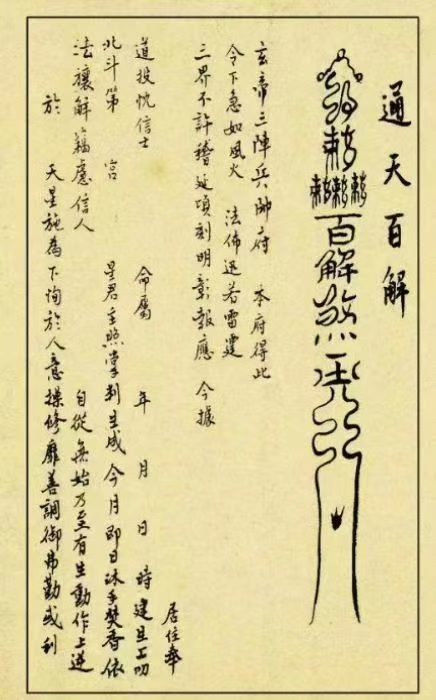 通天百解
敕敕敕敕
百解煞
玄帝三陣兵師府　本府得此
令下急如風火　法佈迅若雷霆
三界不許稽延頃刻明彰報應　今據
居住奉
道投忱信士　命屬　年　月　日　時建生上叩
北斗第　宮　星君主照掌判生成今月即日沐手焚香依
法禳解　信人　自從無始乃至有生動作上逆
於　天星施為下徇於人意操修靡善調御弗勤或